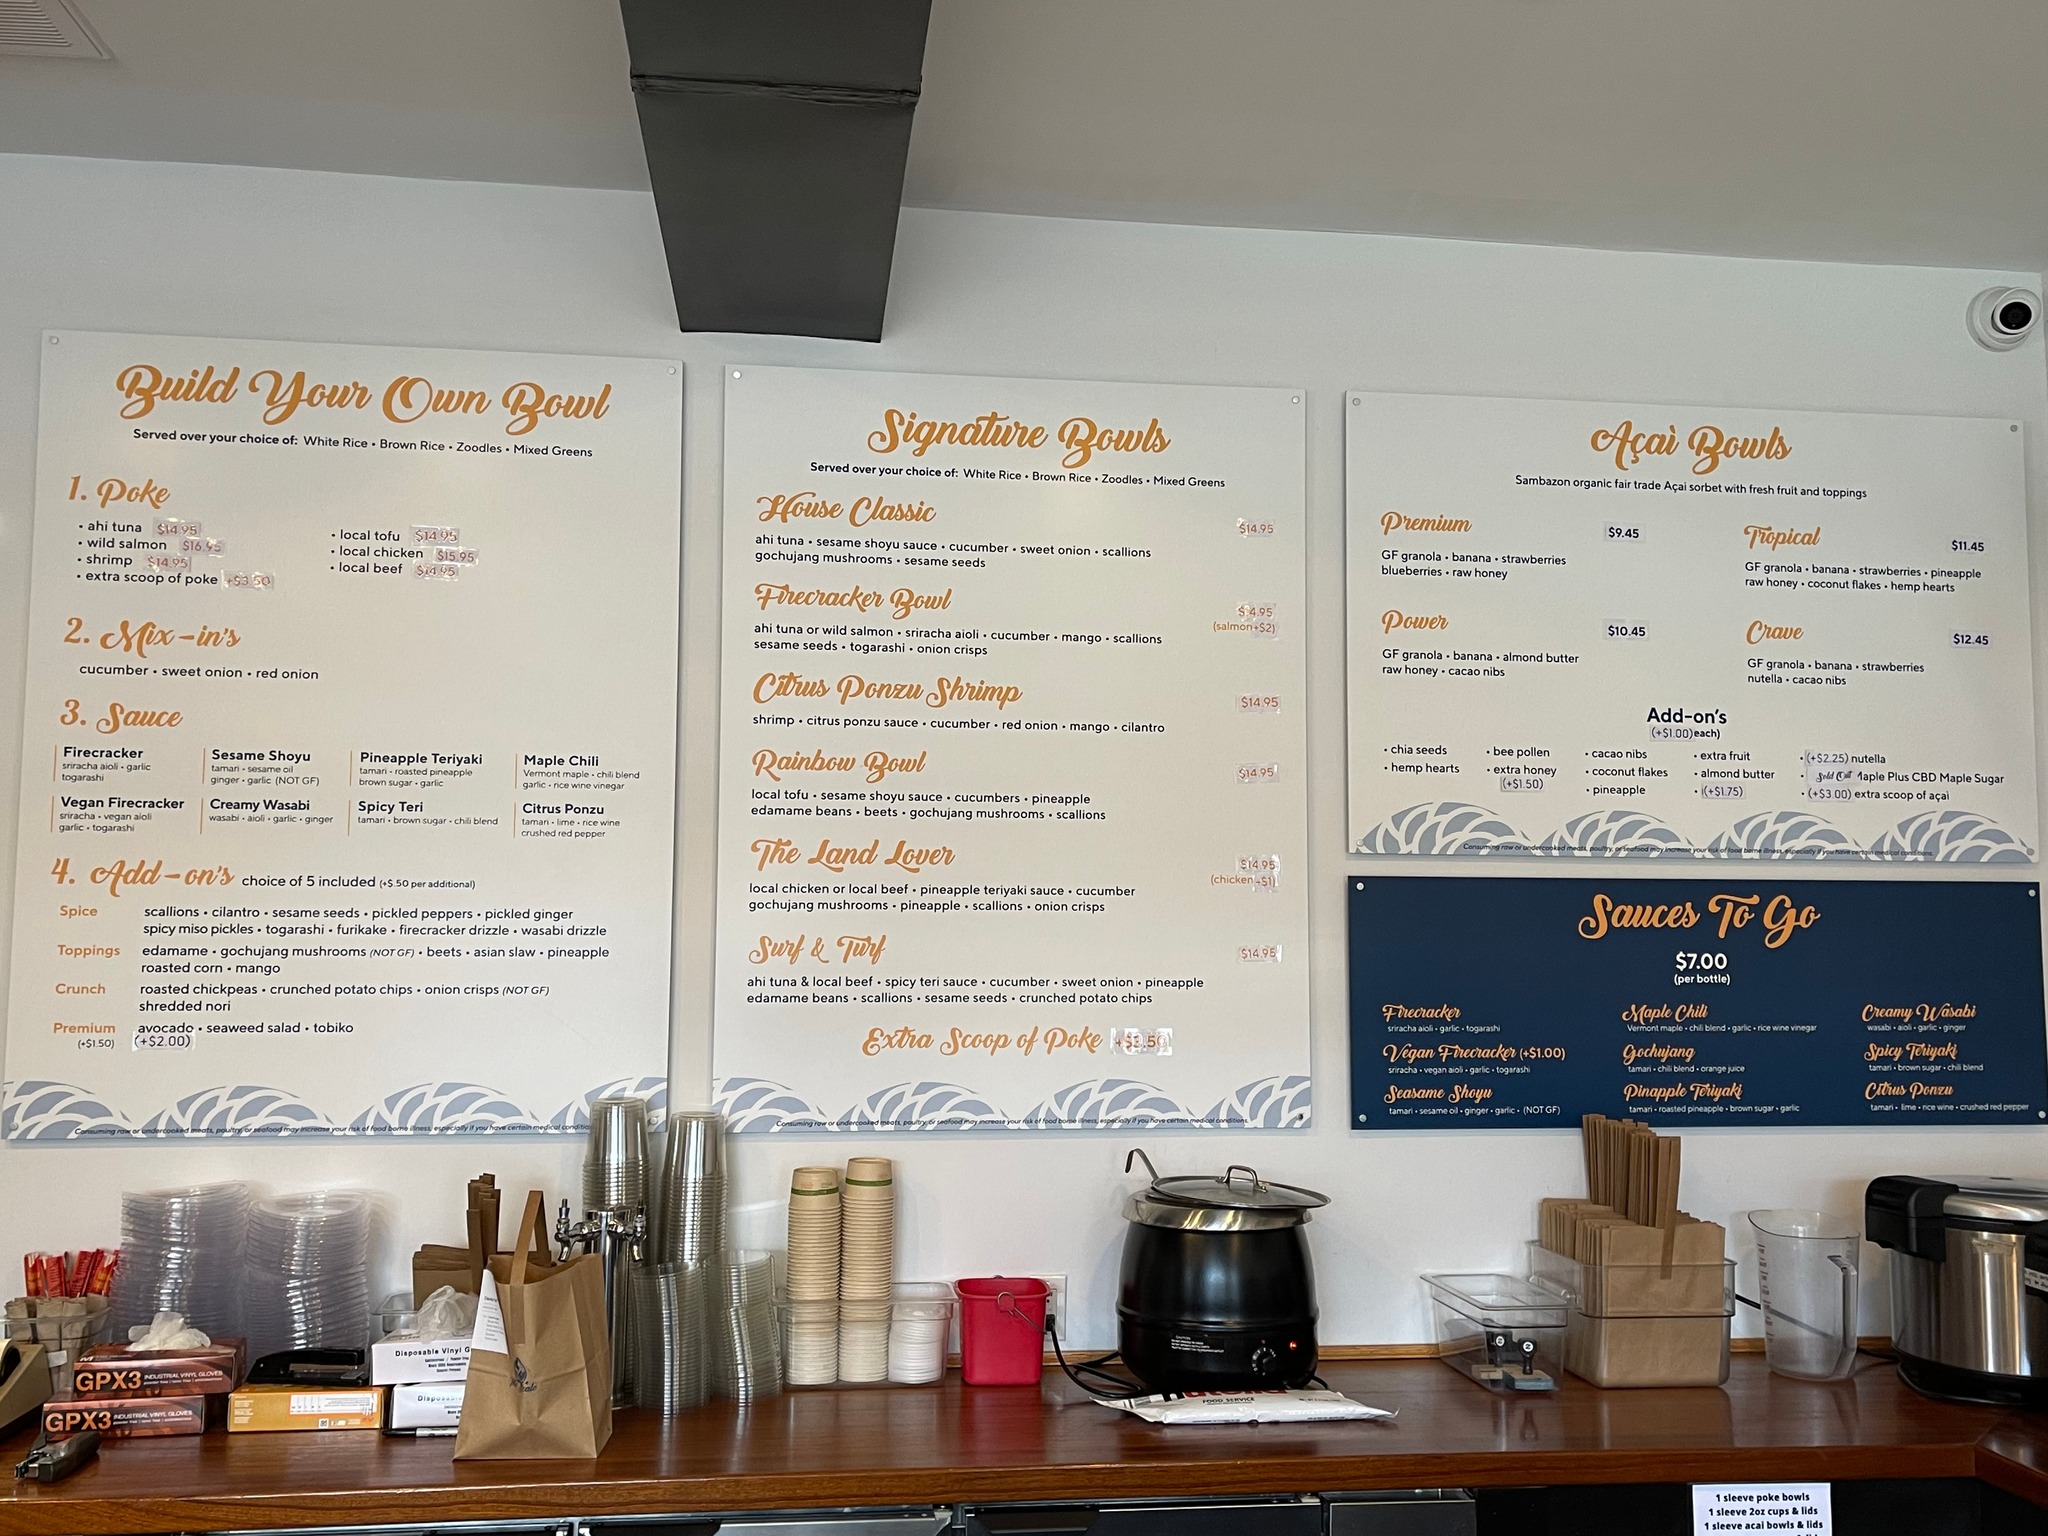 Build Your Own Bowl
Served over your choice of: White Rice • Brown Rice • Zoodles • Mixed Greens
1. Poke
• ahi tuna $14.95
• wild salmon $16.95
• shrimp $14.95
• extra scoop of poke +$3.50
• local tofu $14.95
• local chicken $15.95
• local beef $14.95
2. Mix-in's
cucumber • sweet onion • red onion
3. Sauce
Firecracker
sriracha aioli • garlic
togarashi
Sesame Shoyu
tamari • sesame oil
ginger • garlic (NOT GF)
Pineapple Teriyaki
tamari • roasted pineapple
brown sugar • garlic
Maple Chili
Vermont maple • chili blend
garlic • rice wine vinegar
Vegan Firecracker
sriracha • vegan aioli
garlic • togarashi
Creamy Wasabi
wasabi • aioli • garlic • ginger
Spicy Teri
tamari • brown sugar • chili blend
Citrus Ponzu
tamari • lime • rice wine
crushed red pepper
4. Add-on's choice of 5 included (+$.50 per additional)
Spice scallions • cilantro • sesame seeds • pickled peppers • pickled ginger
spicy miso pickles • togarashi • furikake • firecracker drizzle • wasabi drizzle
Toppings edamame • gochujang mushrooms (NOT GF) • beets • asian slaw • pineapple
roasted corn • mango
Crunch roasted chickpeas • crunched potato chips • onion crisps (NOT GF)
shredded nori
Premium avocado • seaweed salad • tobiko
(+$1.50) (+$2.00)
Consuming raw or undercooked meats, poultry, or seafood may increase your risk of food borne illness, especially if you have certain medical
Signature Bowls
Served over your choice of: White Rice • Brown Rice • Zoodles • Mixed Greens
House Classic $14.95
ahi tuna • sesame shoyu sauce • cucumber • sweet onion • scallions
gochujang mushrooms • sesame seeds
Firecracker Bowl $14.95
(salmon+$2)
ahi tuna or wild salmon • sriracha aioli • cucumber • mango • scallions
sesame seeds • togarashi • onion crisps
Citrus Ponzu Shrimp $14.95
shrimp • citrus ponzu sauce • cucumber • red onion • mango • cilantro
Rainbow Bowl $14.95
local tofu • sesame shoyu sauce • cucumbers • pineapple
edamame beans • beets • gochujang mushrooms • scallions
The Land Lover $14.95
(chicken +$1)
local chicken or local beef • pineapple teriyaki sauce • cucumber
gochujang mushrooms • pineapple • scallions • onion crisps
Surf & Turf $14.95
ahi tuna & local beef • spicy teri sauce • cucumber • sweet onion • pineapple
edamame beans • scallions • sesame seeds • crunched potato chips
Extra Scoop of Poke +$3.50
Consuming raw or undercooked meats, poultry, or seafood may increase your risk of food borne illness, especially if you have certain medical conditions.
Açaì Bowls
Sambazon organic fair trade Açai sorbet with fresh fruit and toppings
Premium $9.45
GF granola • banana • strawberries
blueberries • raw honey
Tropical $11.45
GF granola • banana • strawberries • pineapple
raw honey • coconut flakes • hemp hearts
Power $10.45
GF granola • banana • almond butter
raw honey • cacao nibs
Crave $12.45
GF granola • banana • strawberries
nutella • cacao nibs
Add-on's
(+$1.00)each)
• chia seeds
• hemp hearts
• bee pollen
• extra honey
(+$1.50)
• cacao nibs
• coconut flakes
• pineapple
• extra fruit
• almond butter
• (+$1.75)
• (+$2.25) nutella
• Sold Out Maple Plus CBD Maple Sugar
• (+$3.00) extra scoop of açaì
Consuming raw or undercooked meats, poultry, or seafood may increase your risk of food borne illness, especially if you have certain medical conditions.
Sauces To Go
$7.00
(per bottle)
Firecracker
sriracha aioli • garlic • togarashi
Maple Chili
Vermont maple • chili blend • garlic • rice wine vinegar
Creamy Wasabi
wasabi • aioli • garlic • ginger
Vegan Firecracker (+$1.00)
sriracha • vegan aioli • garlic • togarashi
Gochujang
tamari • chili blend • orange juice
Spicy Teriyaki
tamari • brown sugar • chili blend
Seasame Shoyu
tamari • sesame oil • ginger • garlic • (NOT GF)
Pinapple Teriyaki
tamari • roasted pineapple • brown sugar • garlic
Citrus Ponzu
tamari • lime • rice wine • crushed red pepper
GPX3 INDUSTRIAL VINYL GLOVES
GPX3 INDUSTRIAL VINYL GLOVES
Disposable Vinyl G
CAUTION
FOOD SERVICE
1 sleeve poke bowls
1 sleeve 2oz cups & lids
1 sleeve acai bowls & lids